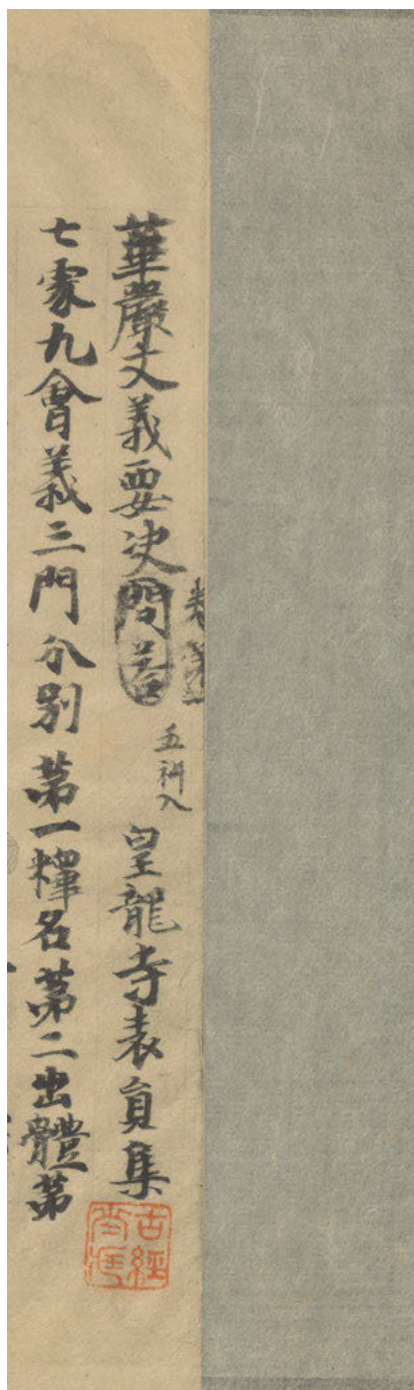 卷第一
華嚴文義要决問荅
五科入
皇龍寺表員集
七處九會義三門分別第一釋名第二出體第
古經